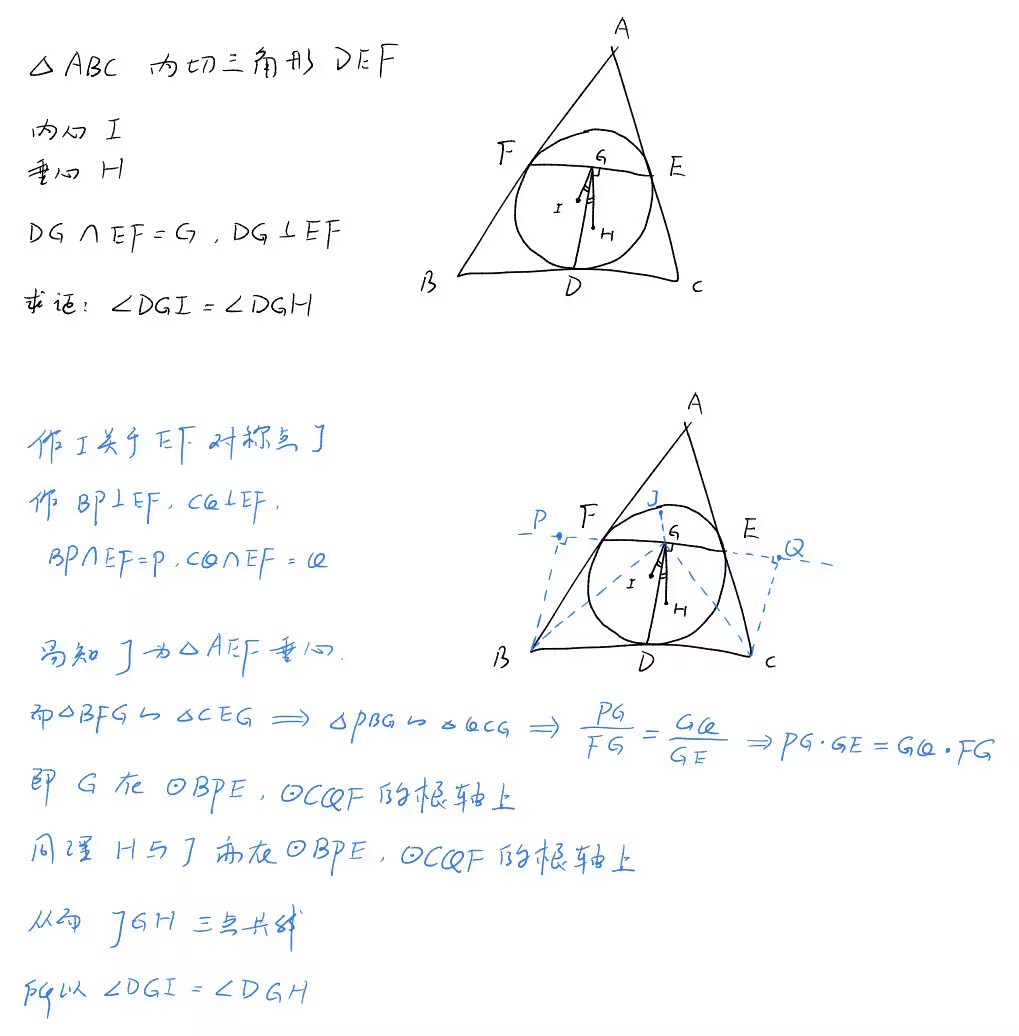 △ABC 内切三角形 DEF
内心 I
垂心 H
DG∩EF=G, DG⊥EF
求证: ∠DGI=∠DGH
A
F
G
E
I
H
B
D
C
作 I 关于 EF 对称点 J
作 BP⊥EF, CQ⊥EF,
BP∩EF=P, CQ∩EF=Q
易知 J 为 △AEF 垂心.
而 △BFG ∽ △CEG ⟹ △PBG ∽ △QCG ⟹ PG/FG = GQ/GE ⟹ PG·GE=GQ·FG
即 G 在 ⊙BPE, ⊙CQF 的根轴上
同理 H 与 J 亦在 ⊙BPE, ⊙CQF 的根轴上
从而 JGH 三点共线
所以 ∠DGI=∠DGH
A
J
P
F
G
E
Q
I
H
B
D
C